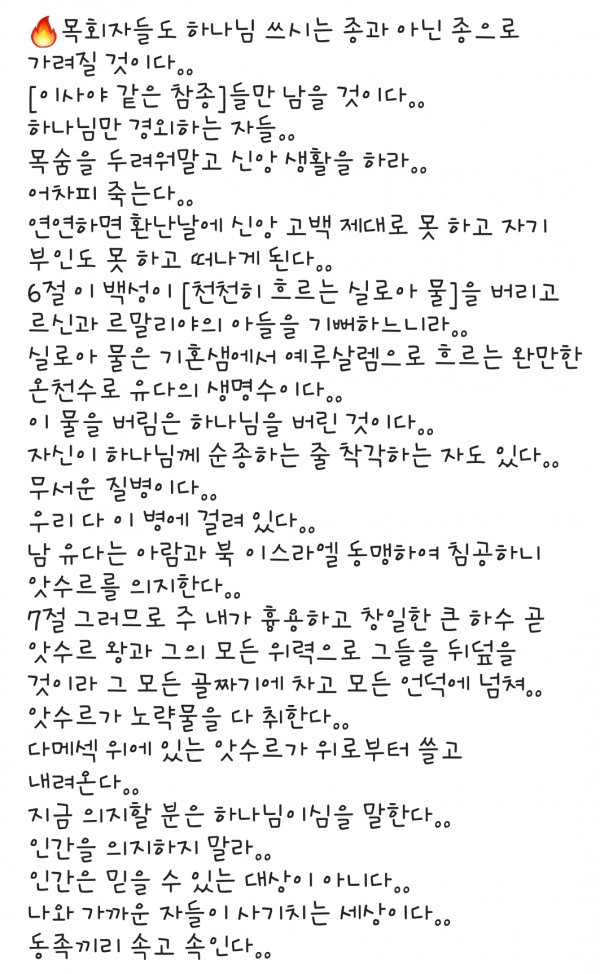 🔥목회자들도 하나님 쓰시는 종과 아닌 종으로
가려질 것이다。。
[이사야 같은 참종]들만 남을 것이다。。
하나님만 경외하는 자들。。
목숨을 두려워말고 신앙 생활을 하라。。
어차피 죽는다。。
연연하면 환난날에 신앙 고백 제대로 못 하고 자기
부인도 못 하고 떠나게 된다。。
6절 이 백성이 [천천히 흐르는 실로아 물]을 버리고
르신과 르말리야의 아들을 기뻐하느니라。。
실로아 물은 기혼샘에서 예루살렘으로 흐르는 완만한
온천수로 유다의 생명수이다。。
이 물을 버림은 하나님을 버린 것이다。。
자신이 하나님께 순종하는 줄 착각하는 자도 있다。。
무서운 질병이다。。
우리 다 이 병에 걸려 있다。。
남 유다는 아람과 북 이스라엘 동맹하여 침공하니
앗수르를 의지한다。。
7절 그러므로 주 내가 흉용하고 창일한 큰 하수 곧
앗수르 왕과 그의 모든 위력으로 그들을 뒤덮을
것이라 그 모든 골짜기에 차고 모든 언덕에 넘쳐。。
앗수르가 노략물을 다 취한다。。
다메섹 위에 있는 앗수르가 위로부터 쓸고
내려온다。。
지금 의지할 분은 하나님이심을 말한다。。
인간을 의지하지 말라。。
인간은 믿을 수 있는 대상이 아니다。。
나와 가까운 자들이 사기치는 세상이다。。
동족끼리 속고 속인다。。